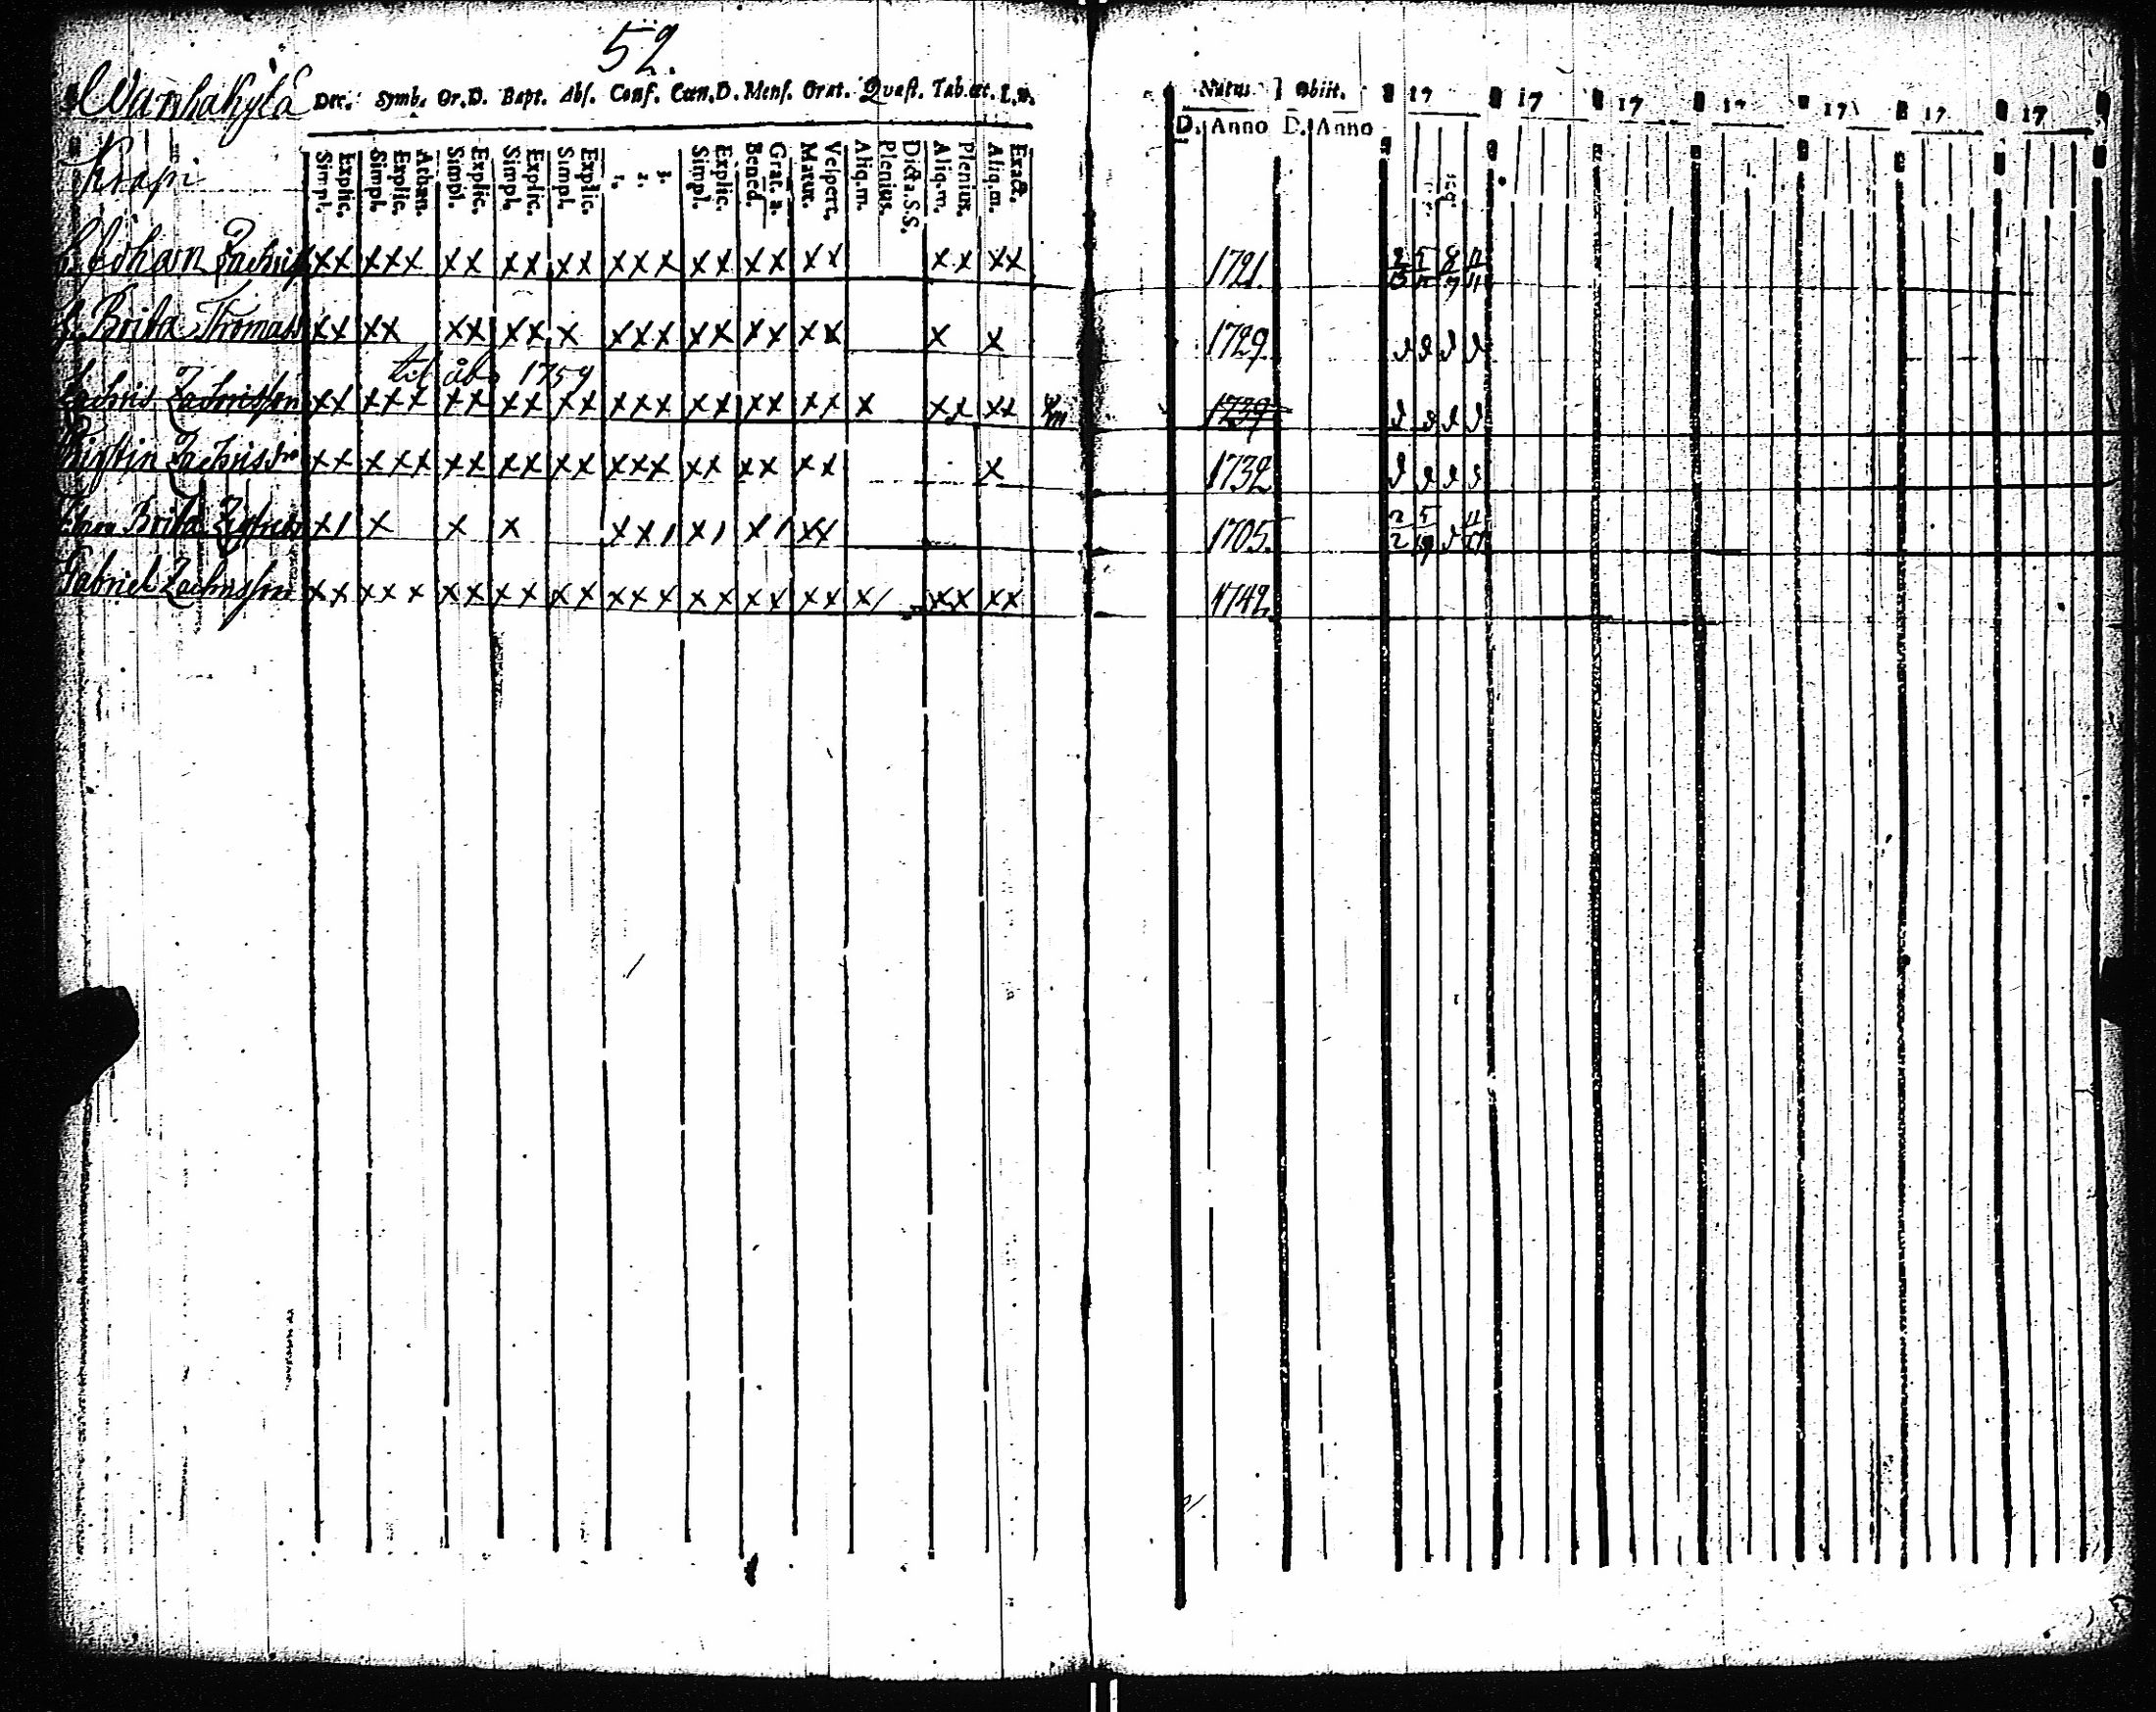 52.
Wanhakylä Dec. Symb. Or.D. Bapt. Abs. Conf. Cœn.D. Mens. Orat. Quæst. Tab.œc. L.n. Natus Obiit. 17 17 17 17 17 17 17
D. Anno D. Anno
Krapi Simpl. Explic. Simpl. Explic. Athan. Simpl. Explic. Simpl. Explic. Simpl. Explic. 1. 2. 3. Simpl. Explic. Bened. Grat. a. Matur. Vespert. Aliq.m. Plenius. Dicta.S.S. Aliq.m. Plenius. Aliq.m. Exact.
Johan xx xxx xx xx xx xxx xx xx xx xx xx 1721.
Brita Thomasd xx xx xx xx x xxx xx xx xx x x 1729
til åbo 1759
Zachris Zachrisson xx xxx xx xx xx xxx xx xx xx x xx xx 1739
Zachrisdr xx xxx xx xx xx xxx xx xx xx x 1732
Brita x/ x x x xx/ x/ x/ xx 1705.
Gabriel Zachrisson xx xxx xx xx xx xxx xx xx xx x/ xx xx 1742